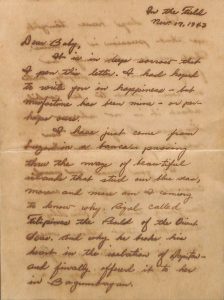 In the Field
Nov. 17, 1943
Dear Baby,
It is in deep sorrow that
I pen this letter. I had hoped
to write you in happiness - but
misfortune has been mine - or per-
haps ours.
I have just come from
thru the maze of beautiful
islands that stud our blue sea,
more and more am I coming
to know why Rizal called
Filipinas the Pearl of the Orient
Seas. And why he broke his
heart in the salvation of
and finally offered it to her
in Bagumbayan.